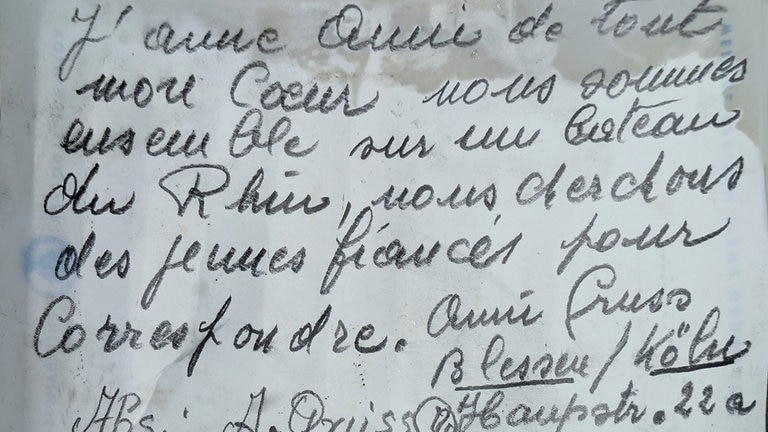 J'aime Anni de tout
mon Cœur nous sommes
ensemble sur un bateau
du Rhin, nous cherchons
des jeunes fiancés pour
Correspondre. Anni
Blessen / Köln
Abs: A. Hauptstr. 22 a